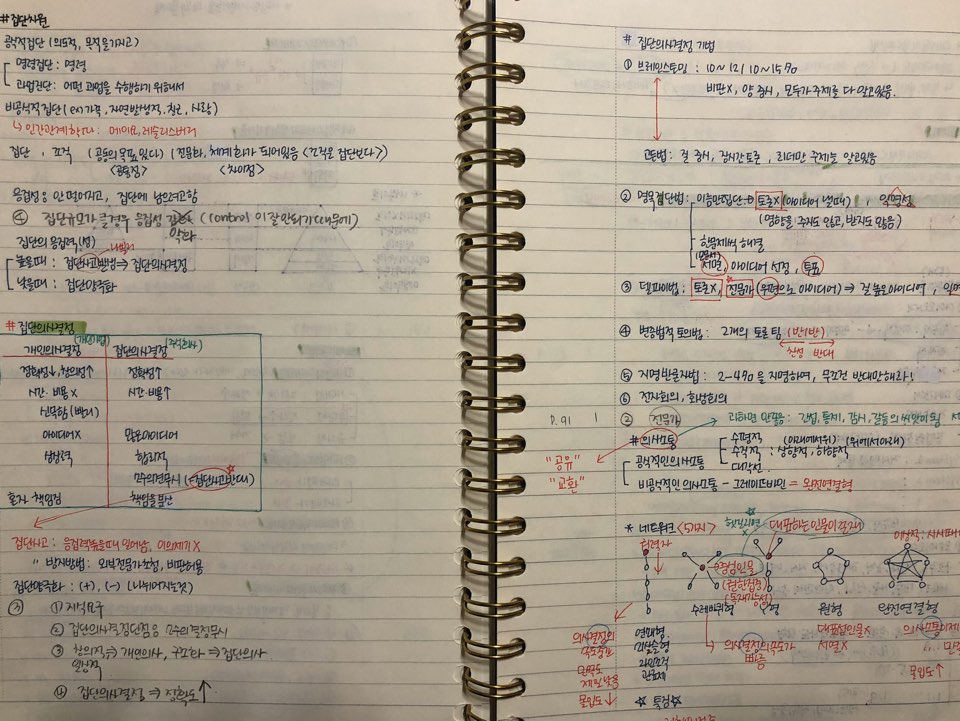 #집단차원
공식적집단 (의도적, 목적을가지고)
명령집단 : 명령
과업집단 : 어떤 과업을 수행하기 위해서
비공식적집단 (ex) 가족, 자연발생적, 친근, 사랑)
↳ 인간관계학파 : 메이요, 레슬리스버거
집단, 조직 (공동의 목표 있다) (전문화, 체계화가 되어있음 <조직은 집단보다>)
<공통점> <차이점>
응집성 은 안 떨어지고, 집단에 남으려고함
④ 집단규모가 클경우 응집성 약화 (control 이 잘 안되기 때문에)
집단의 응집력(성)
높을때 : 집단사고발생 ⇒ 집단의사결정
낮을때 : 집단양극화
# 집단의사결정
개인의사결정 (개인기업) 집단의사결정 (주식회사)
정확성↓, 창의성↑ 정확성↑
시간·비용 X 시간·비용↑
신속함 (빠르다)
아이디어 X 많은아이디어
합리적
소수의견무시 (=집단사고한다)
혼자 책임짐 책임을분산
집단사고 : 응집력높을때 일어남, 이의제기 X
〃 방지방법 : 외부전문가초청, 비판허용
집단양극화 : (+), (-) (나뉘어지는것)
① 지식요구
② 집단의사결정단점은 소수의결정무시
③ 창의적 ⇒ 개인의사, 구조화 ⇒ 집단의사
일상적
④ 집단의사결정 ⇒ 정확도↑
# 집단의사결정 기법
① 브레인스토밍 : 10~12 / 10~15명
비판X, 양 중시, 모두가 주제를 다 알고있음
고든법 : 질 중시, 장시간토론, 리더만 주제를 알고있음
② 명목집단법 : 이름만집단 → 토론X (아이디어 낼때), 익명성
(영향을 주지도 않고, 받지도 않음)
한문제씩 해결
서면, 아이디어 선정, 투표
③ 델파이법 : 토론X, 전문가 (우편으로 아이디어) ⇒ 질 높은 아이디어, 익명
④ 변증법적 토의법 : 2개의 토론팀 (반/반)
찬성 반대
⑤ 지명반론자법 : 2-4명을 지명하여, 무조건 반대만해라!
⑥ 전자회의, 화상회의
P.91
② 전문가 과하면 안좋음 : 간섭, 통제, 감시, 갈등의 씨앗이 됨
#의사소통
"공유"
"교환"
수평적 (아래에서위) (위에서아래)
수직적 : 상향적, 하향적
대각선
공식적인의사소통
비공식적인 의사소통 - 그레이프바인 = 완전연결형
* 네트워크 <5가지> 대표하는인물이 존재
중심인물
(권한집중)
수레바퀴형 Y형 원형 완전연결형
의사결정의
의사결정의 속도가
빠름
대표성인물X
서열X
몰입도↓
몰입도↑
☆ 특검☆